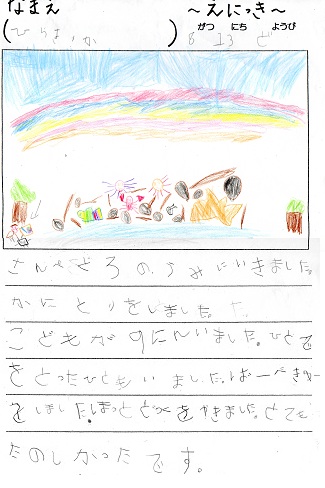 なまえ ～えにっき～
がつ にち ようび
8 13 ど
さんぺどろのうみにいきました。
かにとりをしました。
こどもが9にんいました。ひとで
をとったひともいました。ばーべきゅー
をしました。 をかきました。とても
たのしかったです。